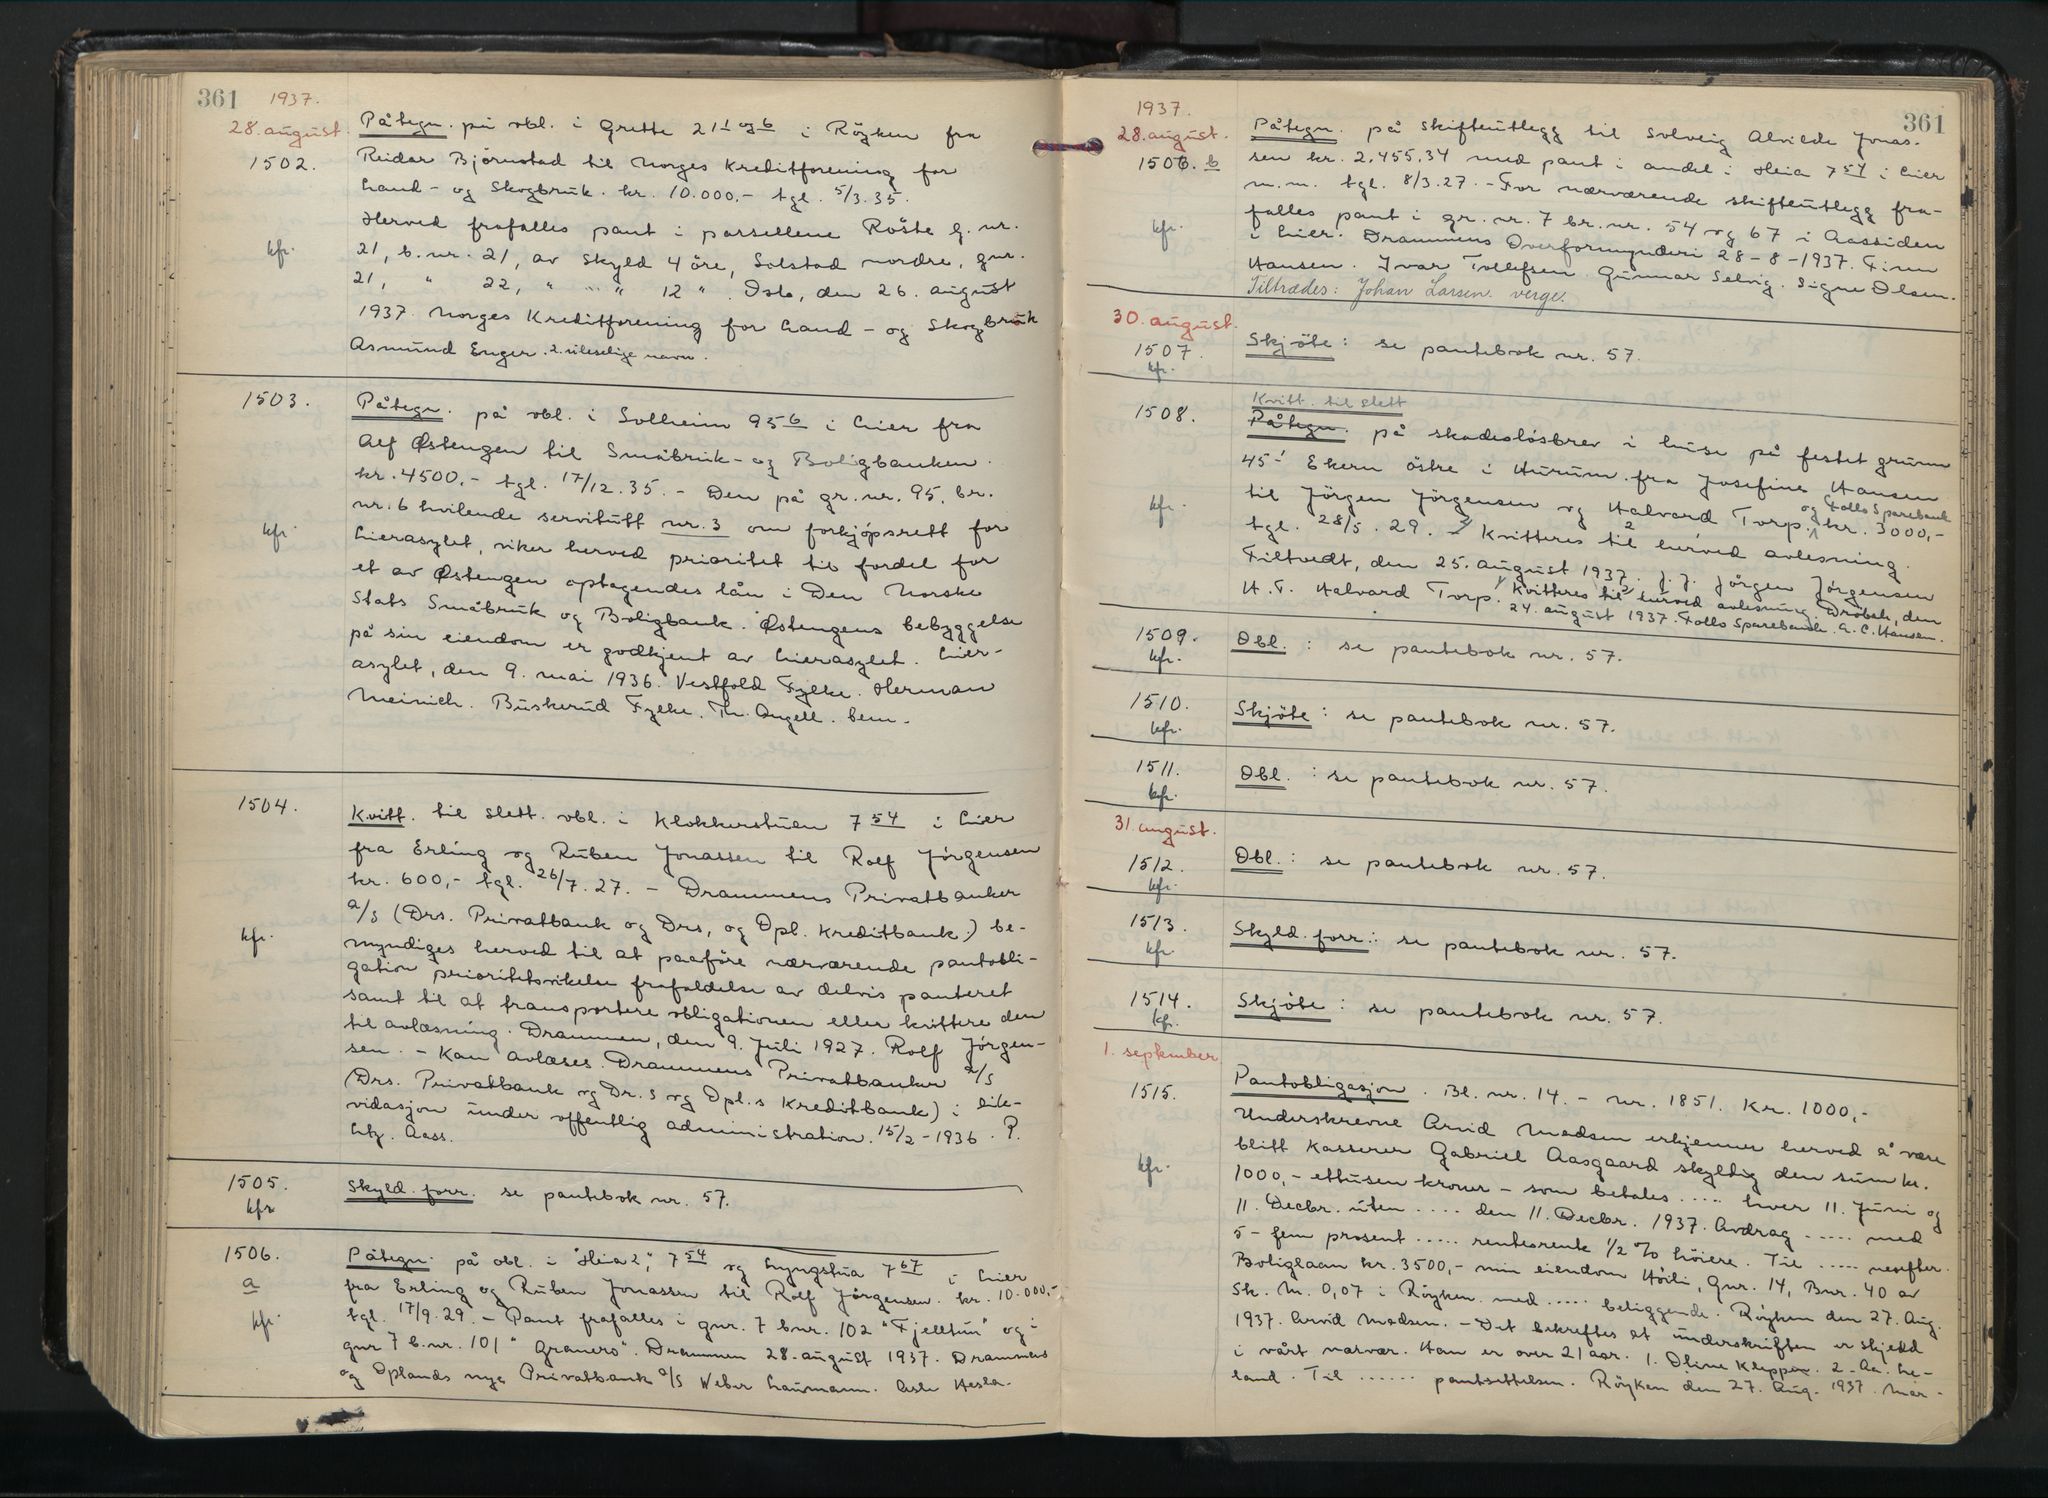 361
1937.
28. august.
1502.
kfr.
Påtegn. på obl. i Grette 21 1 og 6 i Röyken fra
Reidar Björnstad til Norges Kreditforening for
Land- og Skogbruk. kr. 10.000,- tgl. 5/3.35.
Herved frafalles pant i parsellene Röste g. nr.
21, b. nr. 21, av skyld 4 öre, Solstad nordre, gnr.
21, " 22, " " " 12 " . Oslo, den 26. august
1937. Norges Kreditforening for Land- og Skogbruk
Asmund Enger. 2 uleselige navn.
1503.
kfr.
Påtegn. på obl. i Solheim 95 6 i Lier fra
Alf Østengen til Småbruk- og Boligbanken.
kr. 4500,- tgl. 17/12.35. - Den på gr. nr. 95, br.
nr. 6 hvilende servitutt nr. 3 om forkjöpsrett for
Lierasylet, viker herved prioritet til fordel for
et av Østengen optagendes lån i Den Norske
Stats Småbruk og Boligbank. Østengens bebyggelse
på sin eiendom er godkjent av Lierasylet. Lier-
asylet, den 9. mai 1936. Vestfold Fylke. Herman
Meinich. Buskerud Fylke. Th. Angell. bem.
1504.
kfr.
Kvitt. til slett. obl. i Klokkerstuen 7 54 i Lier
fra Erling og Ruben Jonassen til Rolf Jörgensen
kr. 600,- tgl. 26/7.27. - Drammens Privatbanker
a/s (Drs. Privatbank og Drs, og Opl. Kreditbank.) be-
myndiges herved til at paaföre nærværende pantobli-
gation prioritetsvikelse frafaldelse av delvis panteret
samt til at transportere obligationen eller kvittere den
til avlæsning. Drammen, den 9. Juli 1927. Rolf Jörgen-
sen. - Kan avlæses. Drammens Privatbanker a/s
(Drs. Privatbank og Dr.s og Opl.s Kreditbank) i lik-
vidasjon under offentlig administration. 15/2-1936. P.
Ltz. Aass.
1505.
kfr
Skyld. forr. se pantebok nr. 57.
1506.
a
kfr.
Påtegn. på obl. i "Heia 2", 7 54 og Lyngstua 7 67 i Lier
fra Erling og Ruben Jonassen til Rolf Jörgensen. kr. 10.000,-
tgl. 17/9.29. - Pant frafalles i gnr. 7 bnr. 102 "Fjelltun" og i
gnr 7 b.nr. 101 "Granero". Drammen 28. august 1937. Drammens
og Oplands nye Privatbank a/s Weber Laumann. Asle Hesla.
361
1937.
28. august.
1506. b
kfr.
Påtegn. på skifteutlegg til Solveig Alvilde Jonas-
sen kr. 2.455.34 med pant i andel i Heia 7 54 i Lier
m.m. tgl. 8/3.27. - For nærværende skifteutlegg fra-
falles pant i gr. nr. 7 br. nr. 54 og 67 i Aassiden
i Lier. Drammens Overformynderi 28-8-1937. Finn
Hansen. Ivar Tollefsen. Gunnar Selvig. Signe Olsen.
Tiltrædes: Johan Larsen. verge.
30. august.
1507.
kfr.
Skjöte: se pantebok nr. 57.
1508.
kfr.
Kvitt. til slett
Påtegn. på skadeslösbrev i huse på festet grunn
45 1 Ekern östre i Hurum fra Josefine Hansen
til Jörgen Jörgensen og Halvard Torp. og Follo Sparebank kr. 3000,-
tgl. 28/5.29. - 2/ Kvitteres til herved avlesning.
Filtvedt, den 25. august 1937. J. J. Jörgen Jörgensen
H. T. Halvard Torp. 1/ Kvitteres til herved avlesning. Dröbak, den
24. august 1937. Follo Sparebank. A. C. Hansen.
1509.
kfr.
Obl.: se pantebok nr. 57.
1510.
kfr.
Skjöte: se pantebok nr. 57.
1511.
kfr.
Obl. : se pantebok nr. 57.
31. august.
1512.
kfr.
Obl.: se pantebok nr. 57.
1513.
kfr.
Skyld. forr.: se pantebok nr. 57.
1514.
kfr.
Skjöte: se pantebok nr. 57.
1. september
1515.
kfr.
Pantobligasjon. Bl. nr. 14. - nr. 1851. Kr. 1000,-
Underskrevne Arvid Madsen erkjenner herved å være
blitt kasserer Gabriel Aasgaard skyldig den sum kr.
1000,- ettusen kroner - som betales ..... hver 11. Juni og
11. Decbr. uten .... den 11. Decbr. 1937. Avdrag ..... med
5 - fem prosent ..... renterenk 1/2 % höiere. Til ..... nesefter.
Boliglaan kr. 3500,- min eiendom Höili, Gnr. 14, Bnr. 40 av
Sk. M. 0,07 i Röyken med .... beliggende. Röyken den 27. Aug.
1937. Arvid Madsen. - Det bekreftes at underskriften er skjedd
i vårt nærvær. Han er over 21 aar. 1. Oline Kleppan. 2. Aa. Le-
land. Til ...... pantsettelsen. Röyken den 27. Aug. 1937. Mar-